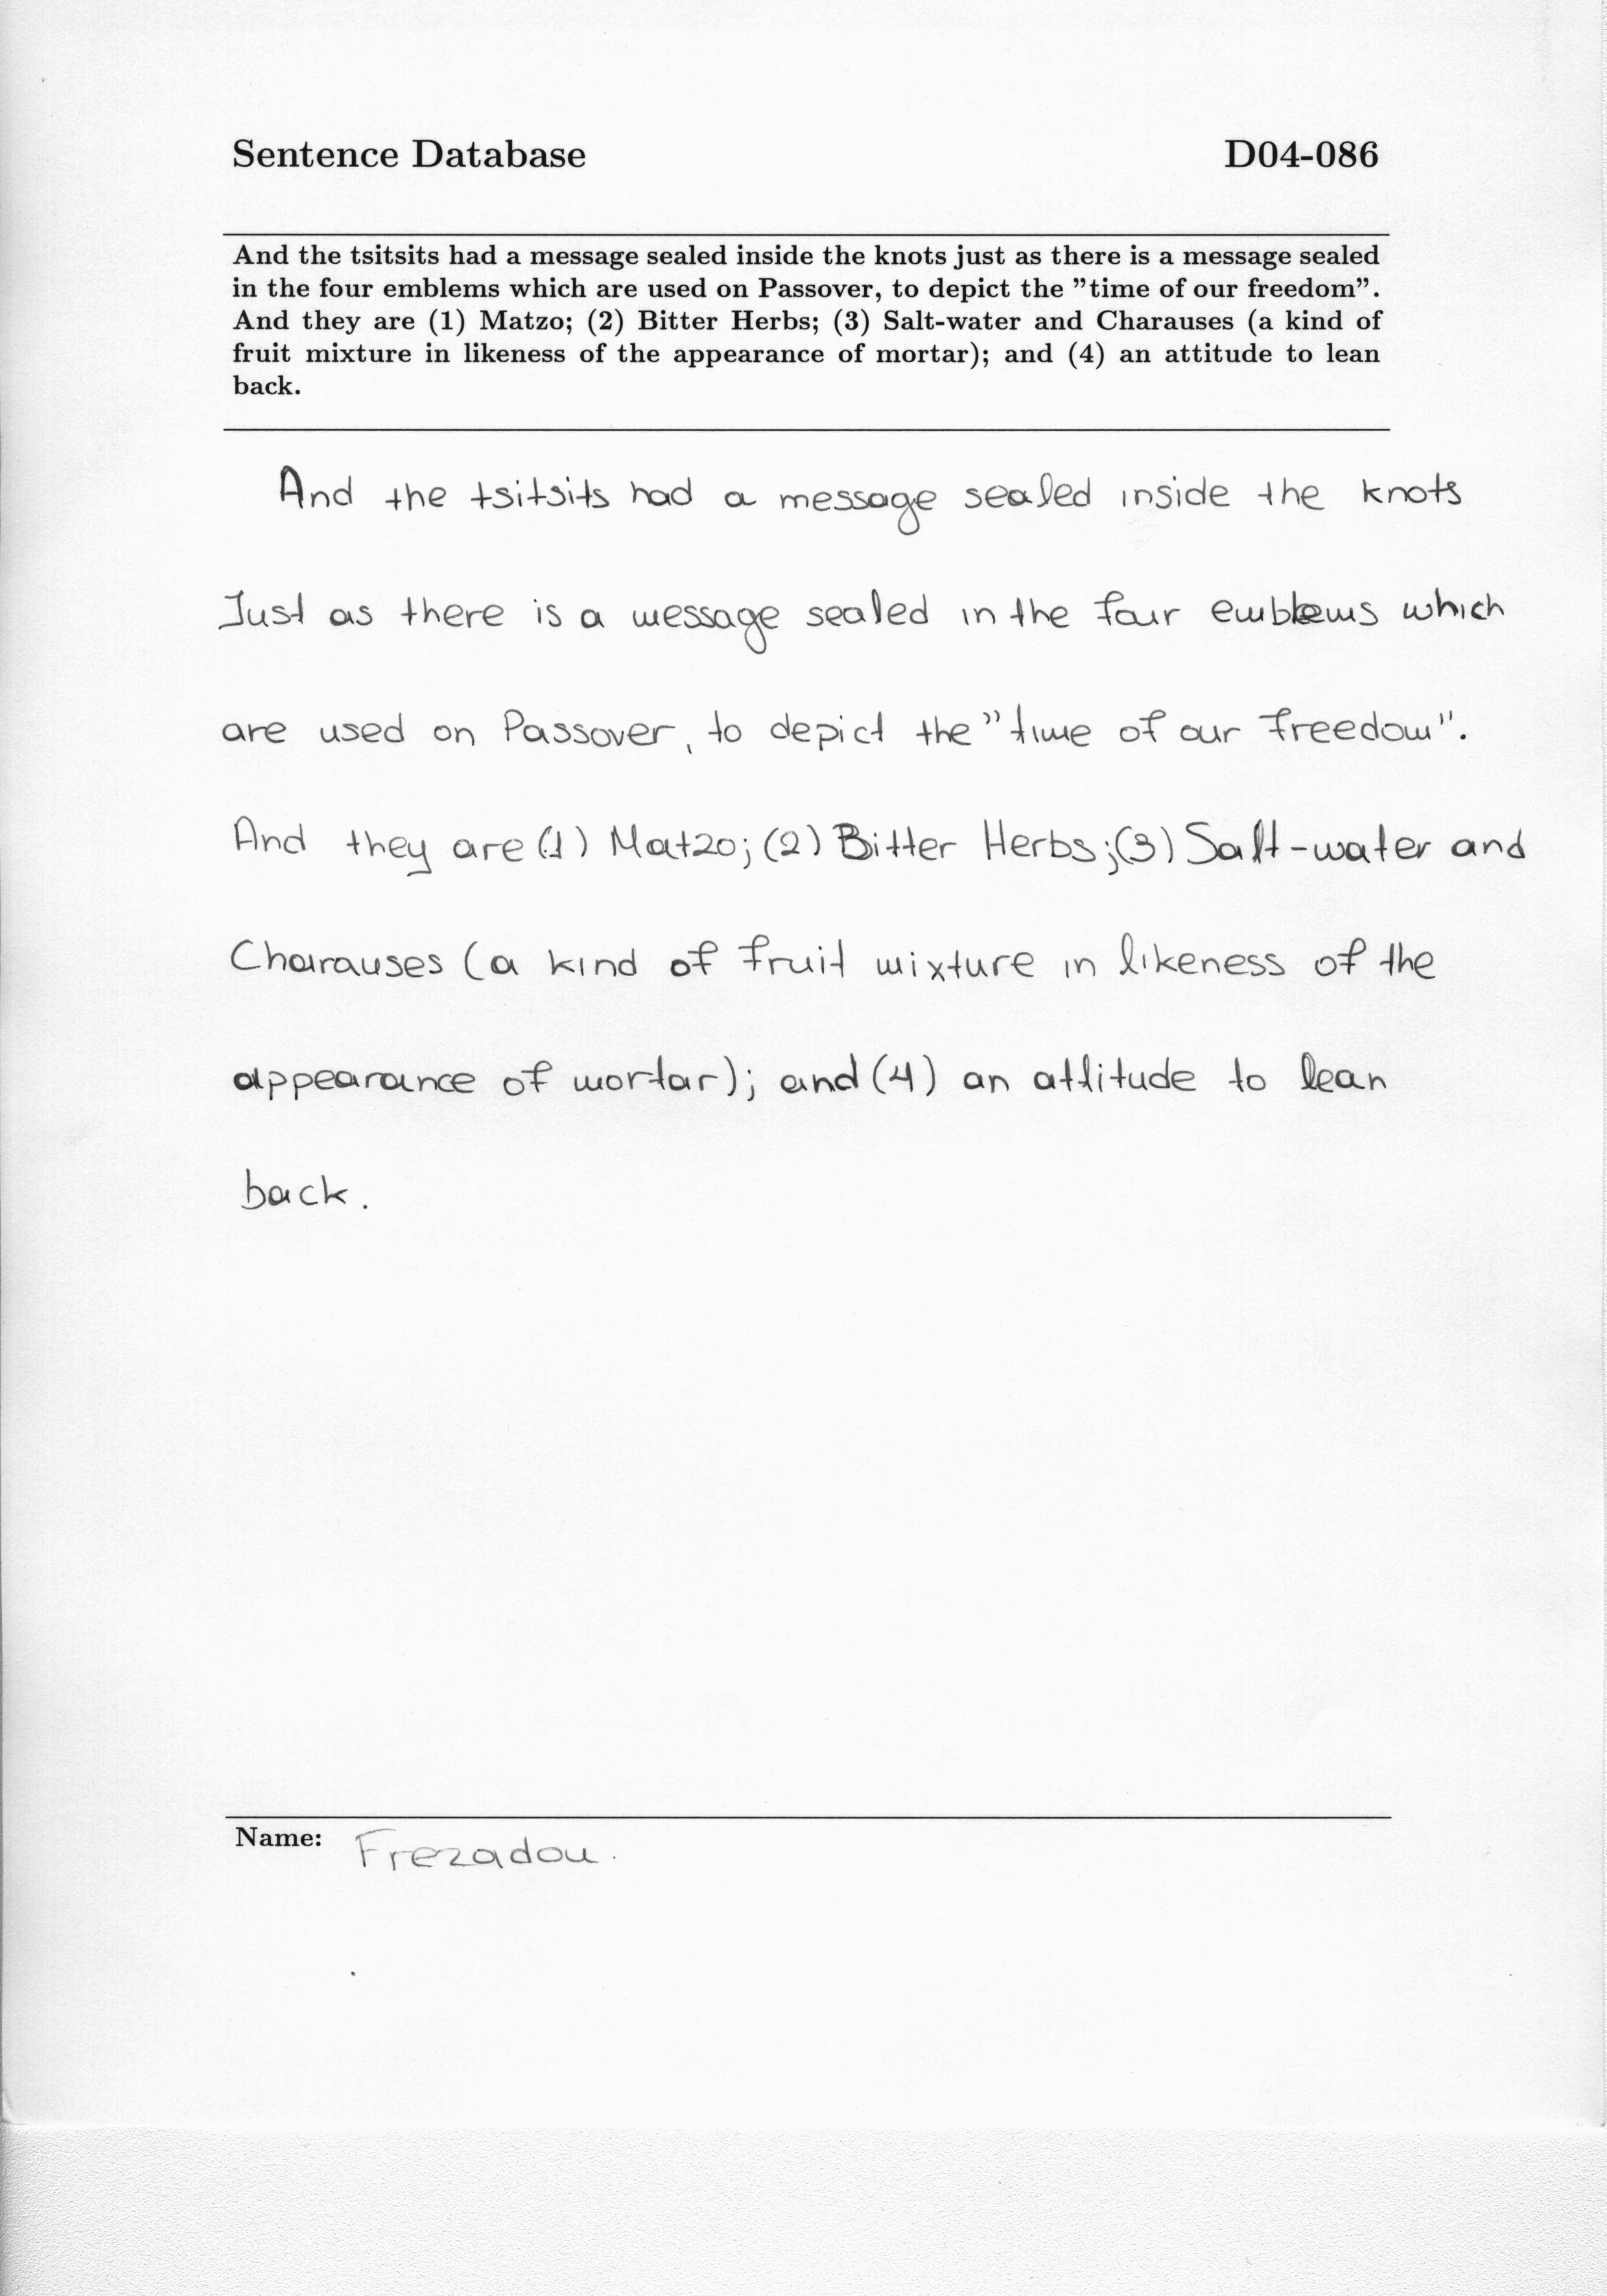 Sentence Database D04-086
And the tsitsits had a message sealed inside the knots just as there is a message sealed
in the four emblems which are used on Passover, to depict the ”time of our freedom”.
And they are (1) Matzo; (2) Bitter Herbs; (3) Salt-water and Charauses (a kind of
fruit mixture in likeness of the appearance of mortar); and (4) an attitude to lean
back.
And the tsitsits had a message sealed inside the knots
Just as there is a message sealed in the four emblems which
are used on Passover, to depict the ”time of our freedom”.
And they are (1) Matzo; (2) Bitter Herbs; (3) Salt-water and
Charauses (a kind of fruit mixture in likeness of the
appearance of mortar); and (4) an attitude to lean
back.
Name: Frezadou.